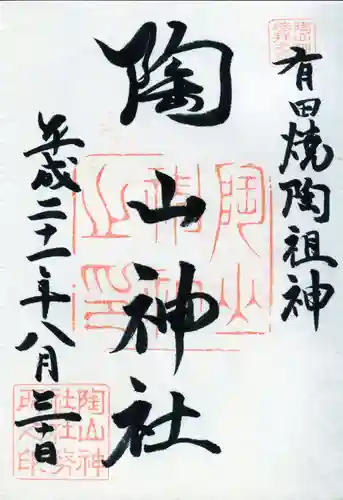 有田焼陶祖神
陶山神社
平成二十一年八月三十日
陶山神
社社務
所之印